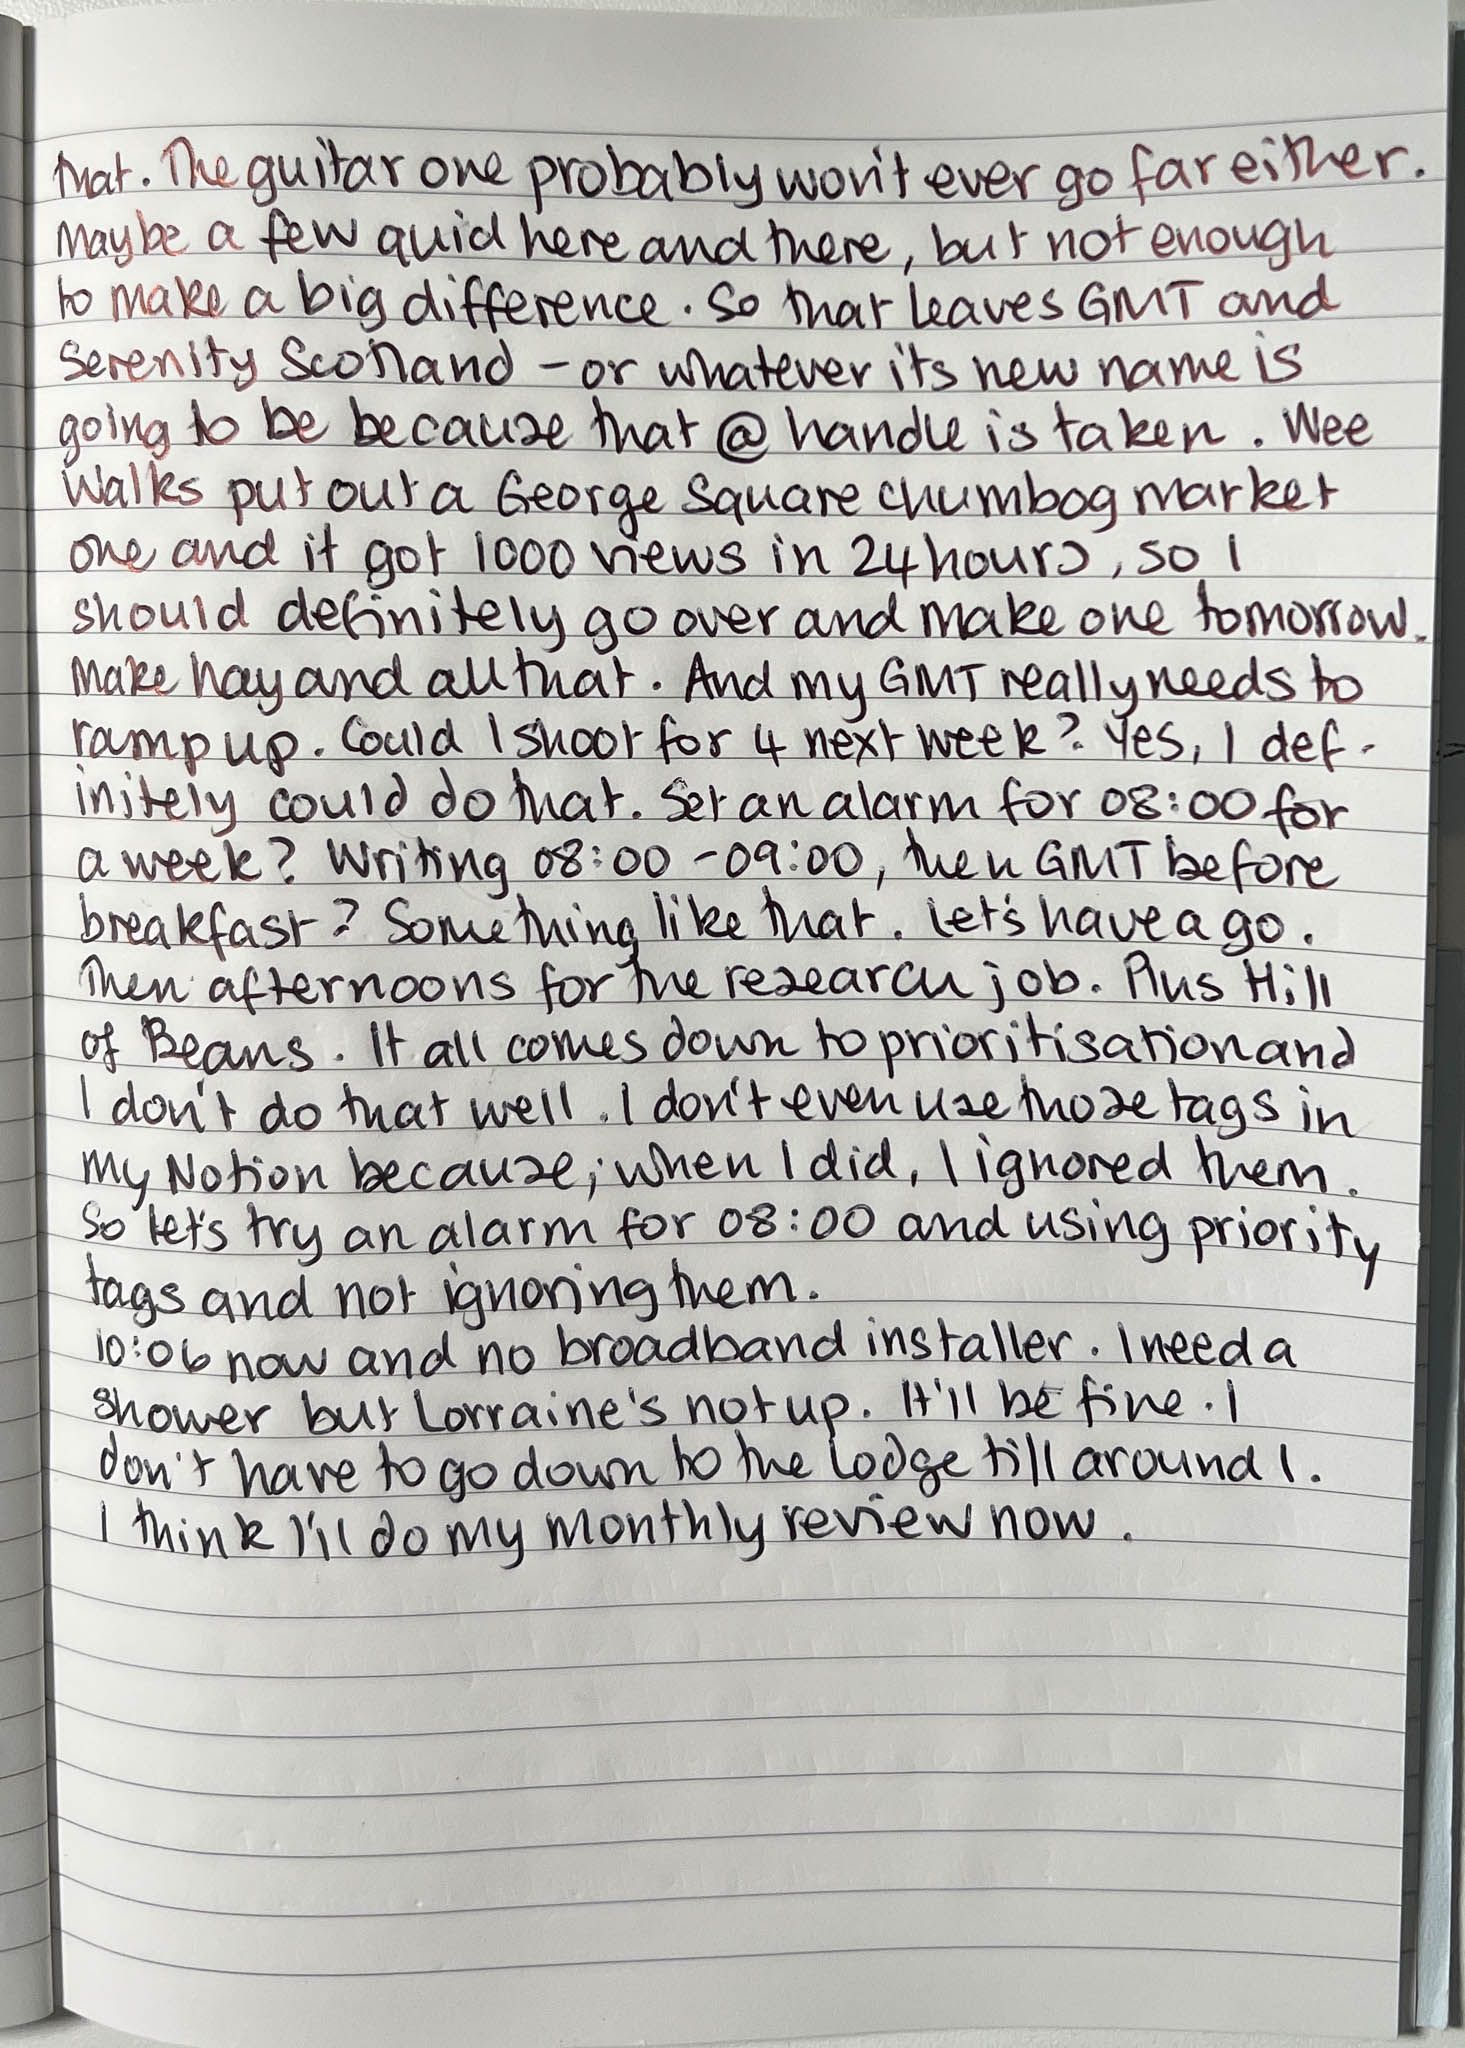 that. The guitar one probably won't ever go far either.
Maybe a few quid here and there, but not enough
to make a big difference. So that leaves GMT and
Serenity Scotland – or whatever its new name is
going to be because that @ handle is taken. Wee
Walks put out a George Square chumbog market
one and it got 1000 views in 24 hours, so I
should definitely go over and make one tomorrow.
Make hay and all that. And my GMT really needs to
ramp up. Could I shoot for 4 next week? Yes, I def-
initely could do that. Set an alarm for 08:00 for
a week? Writing 08:00 – 09:00, then GMT before
breakfast? Something like that. Let's have a go.
Then afternoons for the research job. Plus Hill
of Beans. It all comes down to prioritisation and
I don't do that well. I don't even use those tags in
my Notion because, when I did, I ignored them.
So let's try an alarm for 08:00 and using priority
tags and not ignoring them.
10:06 now and no broadband installer. I need a
shower but Lorraine's not up. It'll be fine. I
don't have to go down to the Lodge till around 1.
I think I'll do my monthly review now.